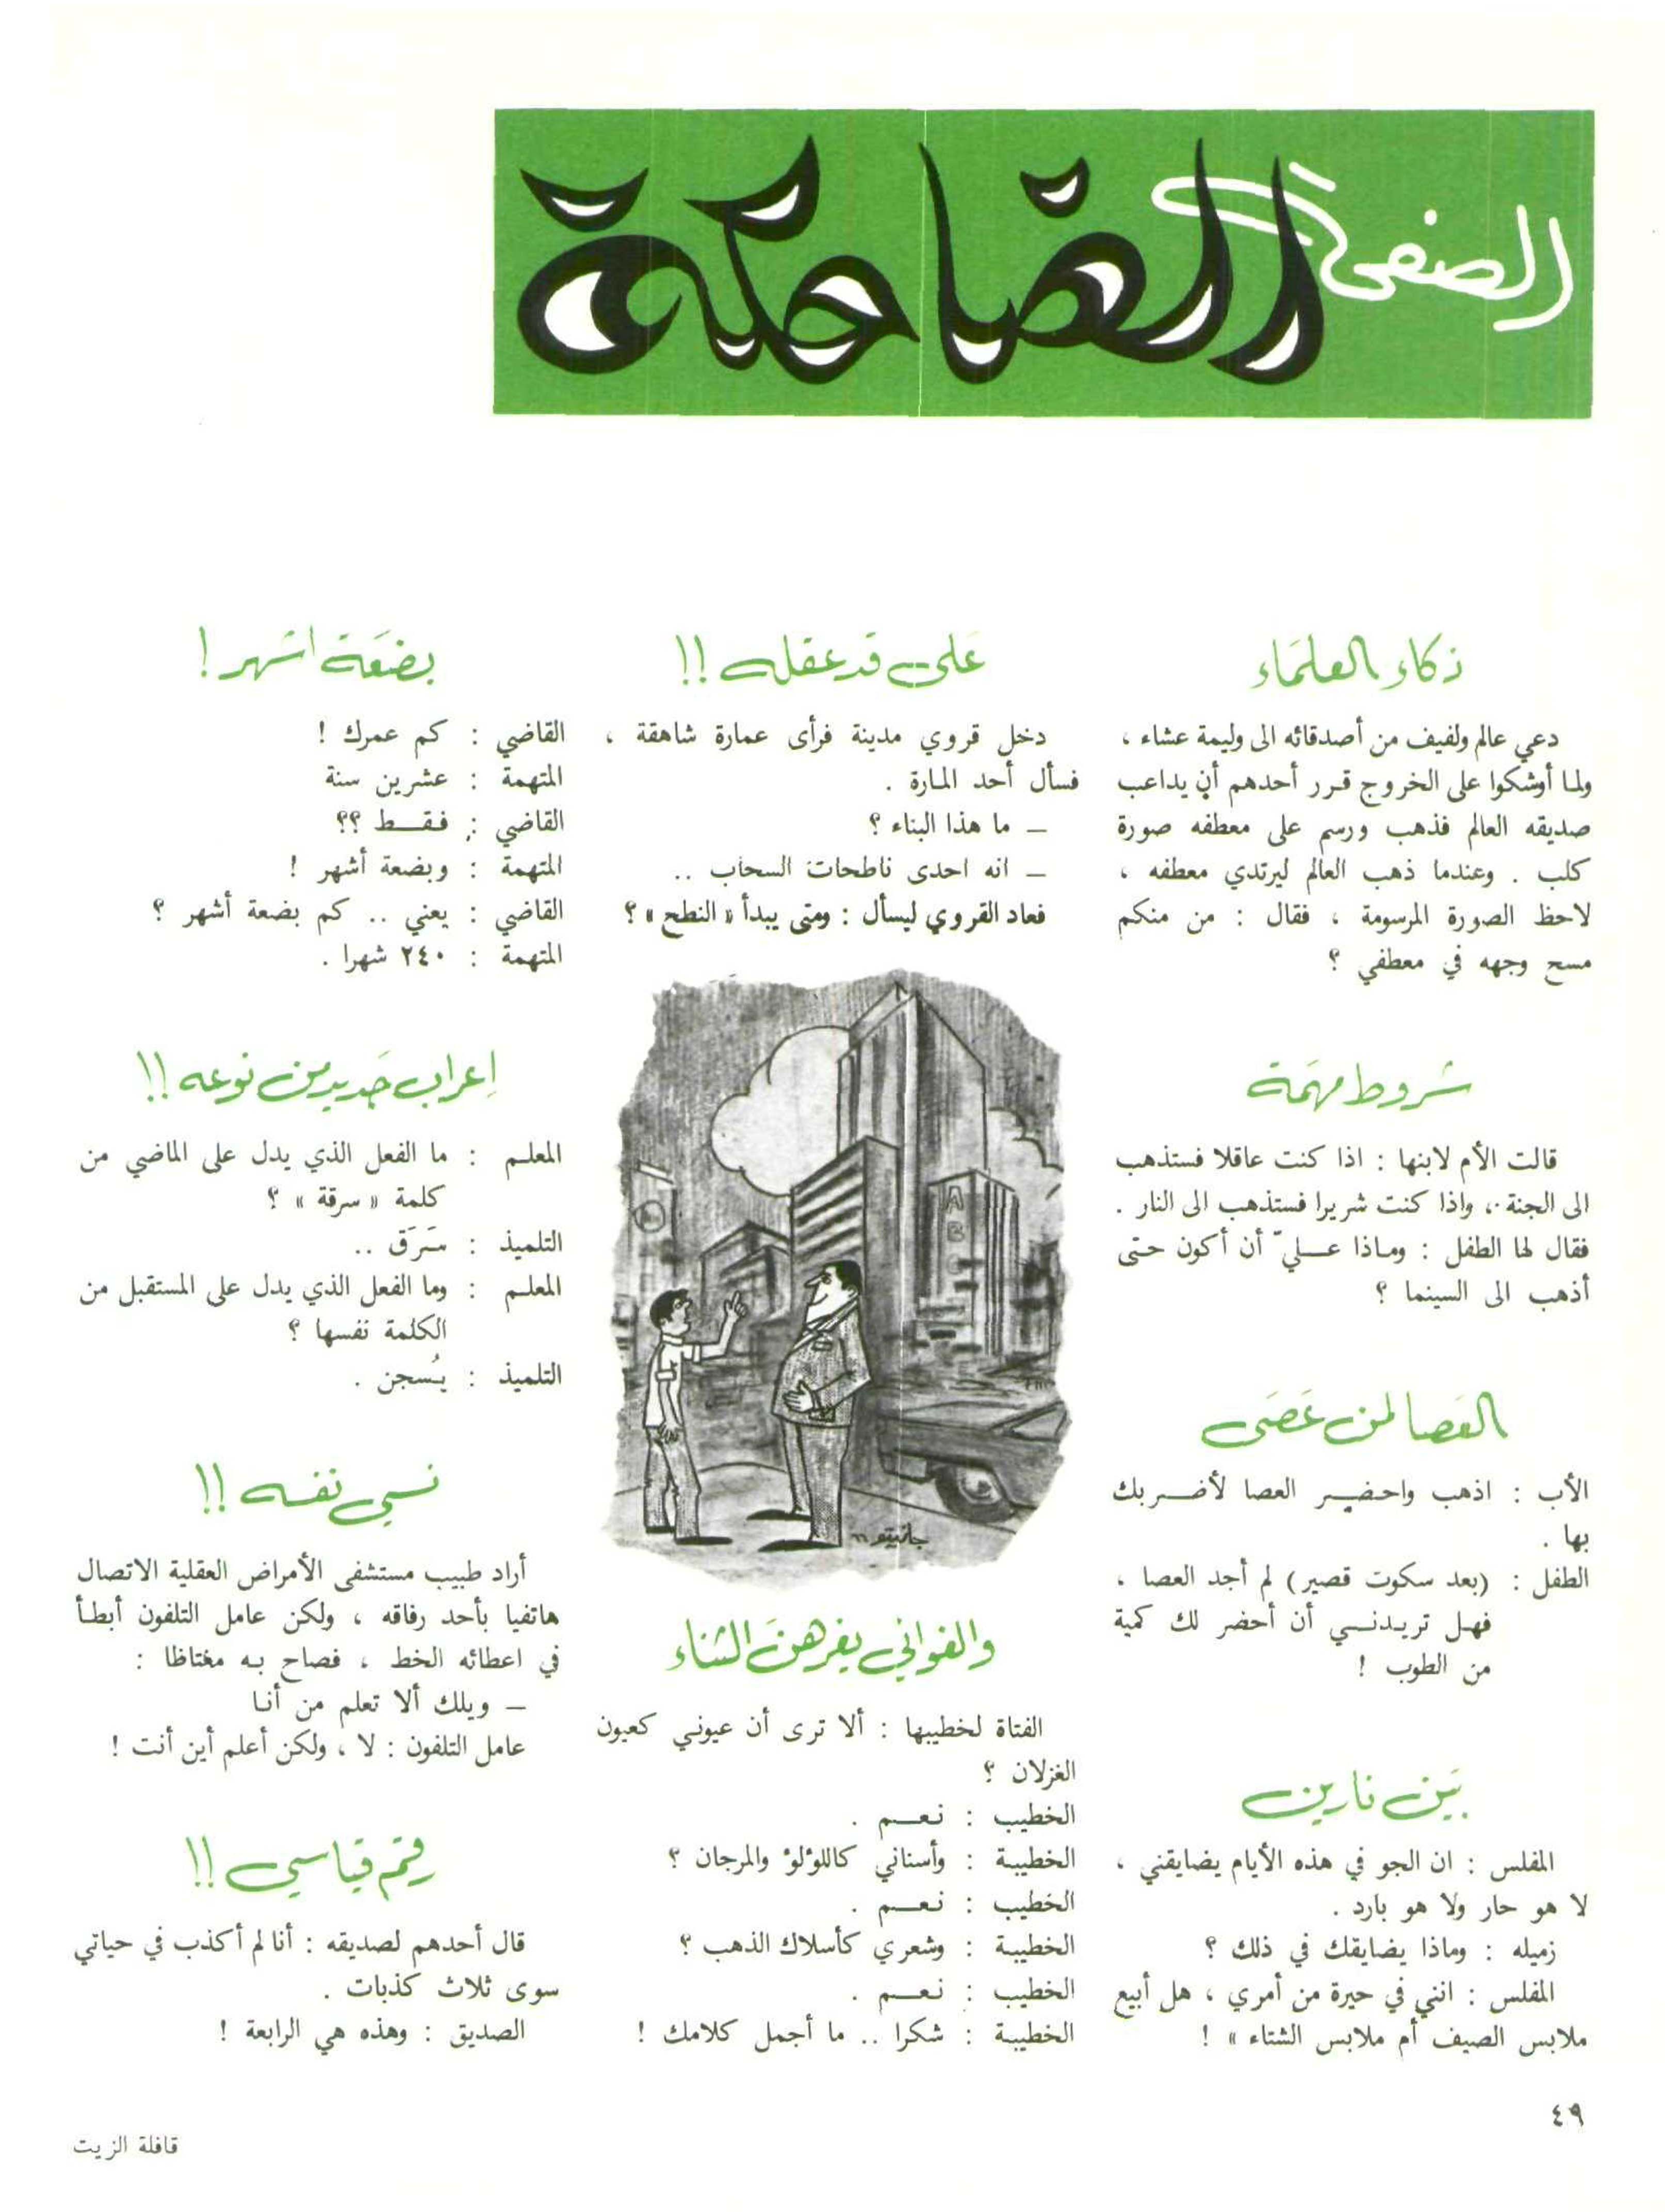 الصفحة الضاحكة
ذكاء العلماء
دعي عالم ولفيف من أصدقائه الى وليمة عشاء ،
ولما أوشكوا على الخروج قرر أحدهم أن يداعب
صديقه العالم فذهب ورسم على معطفه صورة
كلب . وعندما ذهب العالم ليرتدي معطفه ،
لاحظ الصورة المرسومة ، فقال : من منكم
مسح وجهه في معطفي ؟
شروط مهمة
قالت الأم لابنها : اذا كنت عاقلا فستذهب
الى الجنة ، واذا كنت شريرا فستذهب الى النار .
فقال لها الطفل : وماذا عليّ أن أكون حتى
أذهب الى السينما ؟
العصا لمن عصى
الأب : اذهب واحضر العصا لأضربك
بها .
الطفل : (بعد سكوت قصير) لم أجد العصا ،
فهل تريدني أن أحضر لك كمية
من الطوب !
بين نارين
المفلس : ان الجو في هذه الأيام يضايقني ،
لا هو حار ولا هو بارد .
زميله : وماذا يضايقك في ذلك ؟
المفلس : انني في حيرة من أمري ، هل أبيع
ملابس الصيف أم ملابس الشتاء » !
على قد عقله !!
دخل قروي مدينة فرأى عمارة شاهقة ،
فسأل أحد المارة .
– ما هذا البناء ؟
– انه احدى ناطحات السحاب ..
فعاد القروي ليسأل : ومتى يبدأ « النطح » ؟
A
B
C
جانيتو ٦٦
والغواني يغرهن الثناء
الفتاة لخطيبها : ألا ترى أن عيوني كعيون
الغزلان ؟
الخطيب : نعم .
الخطيبة : وأسناني كاللؤلؤ والمرجان ؟
الخطيب : نعم .
الخطيبة : وشعري كأسلاك الذهب ؟
الخطيب : نعم .
الخطيبة : شكرا .. ما أجمل كلامك !
بضعة اشهر !
القاضي : كم عمرك !
المتهمة : عشرين سنة
القاضي : فقط ؟؟
المتهمة : وبضعة أشهر !
القاضي : يعني .. كم بضعة أشهر ؟
المتهمة : ٢٤٠ شهرا .
إعراب جديد من نوعه !!
المعلم : ما الفعل الذي يدل على الماضي من
كلمة « سرقة » ؟
التلميذ : سَرَق ..
المعلم : وما الفعل الذي يدل على المستقبل من
الكلمة نفسها ؟
التلميذ : يُسجن .
نسي نفسه !!
أراد طبيب مستشفى الأمراض العقلية الاتصال
هاتفيا بأحد رفاقه ، ولكن عامل التلفون أبطأ
في اعطائه الخط ، فصاح به مغتاظا :
– ويلك ألا تعلم من أنا
عامل التلفون : لا ، ولكن أعلم أين أنت !
رقم قياسي !!
قال أحدهم لصديقه : أنا لم أكذب في حياتي
سوى ثلاث كذبات .
الصديق : وهذه هي الرابعة !
٤٩
قافلة الزيت